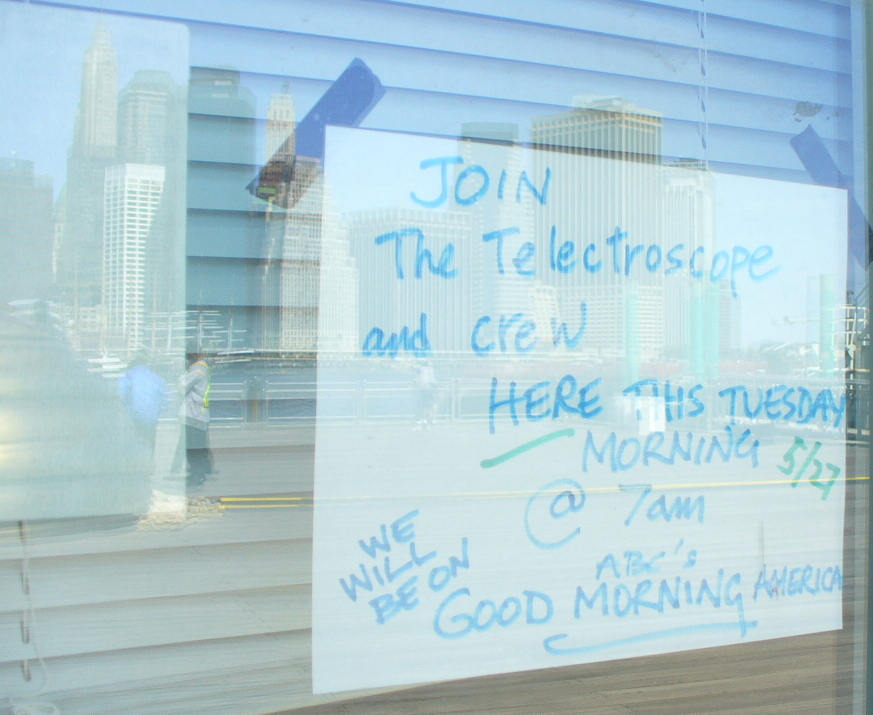 JOIN
The Telectroscope
and crew
HERE THIS TUESDAY
MORNING 5/27
@ 7am
WE
WILL
BE ON
ABC's
GOOD MORNING AMERICA